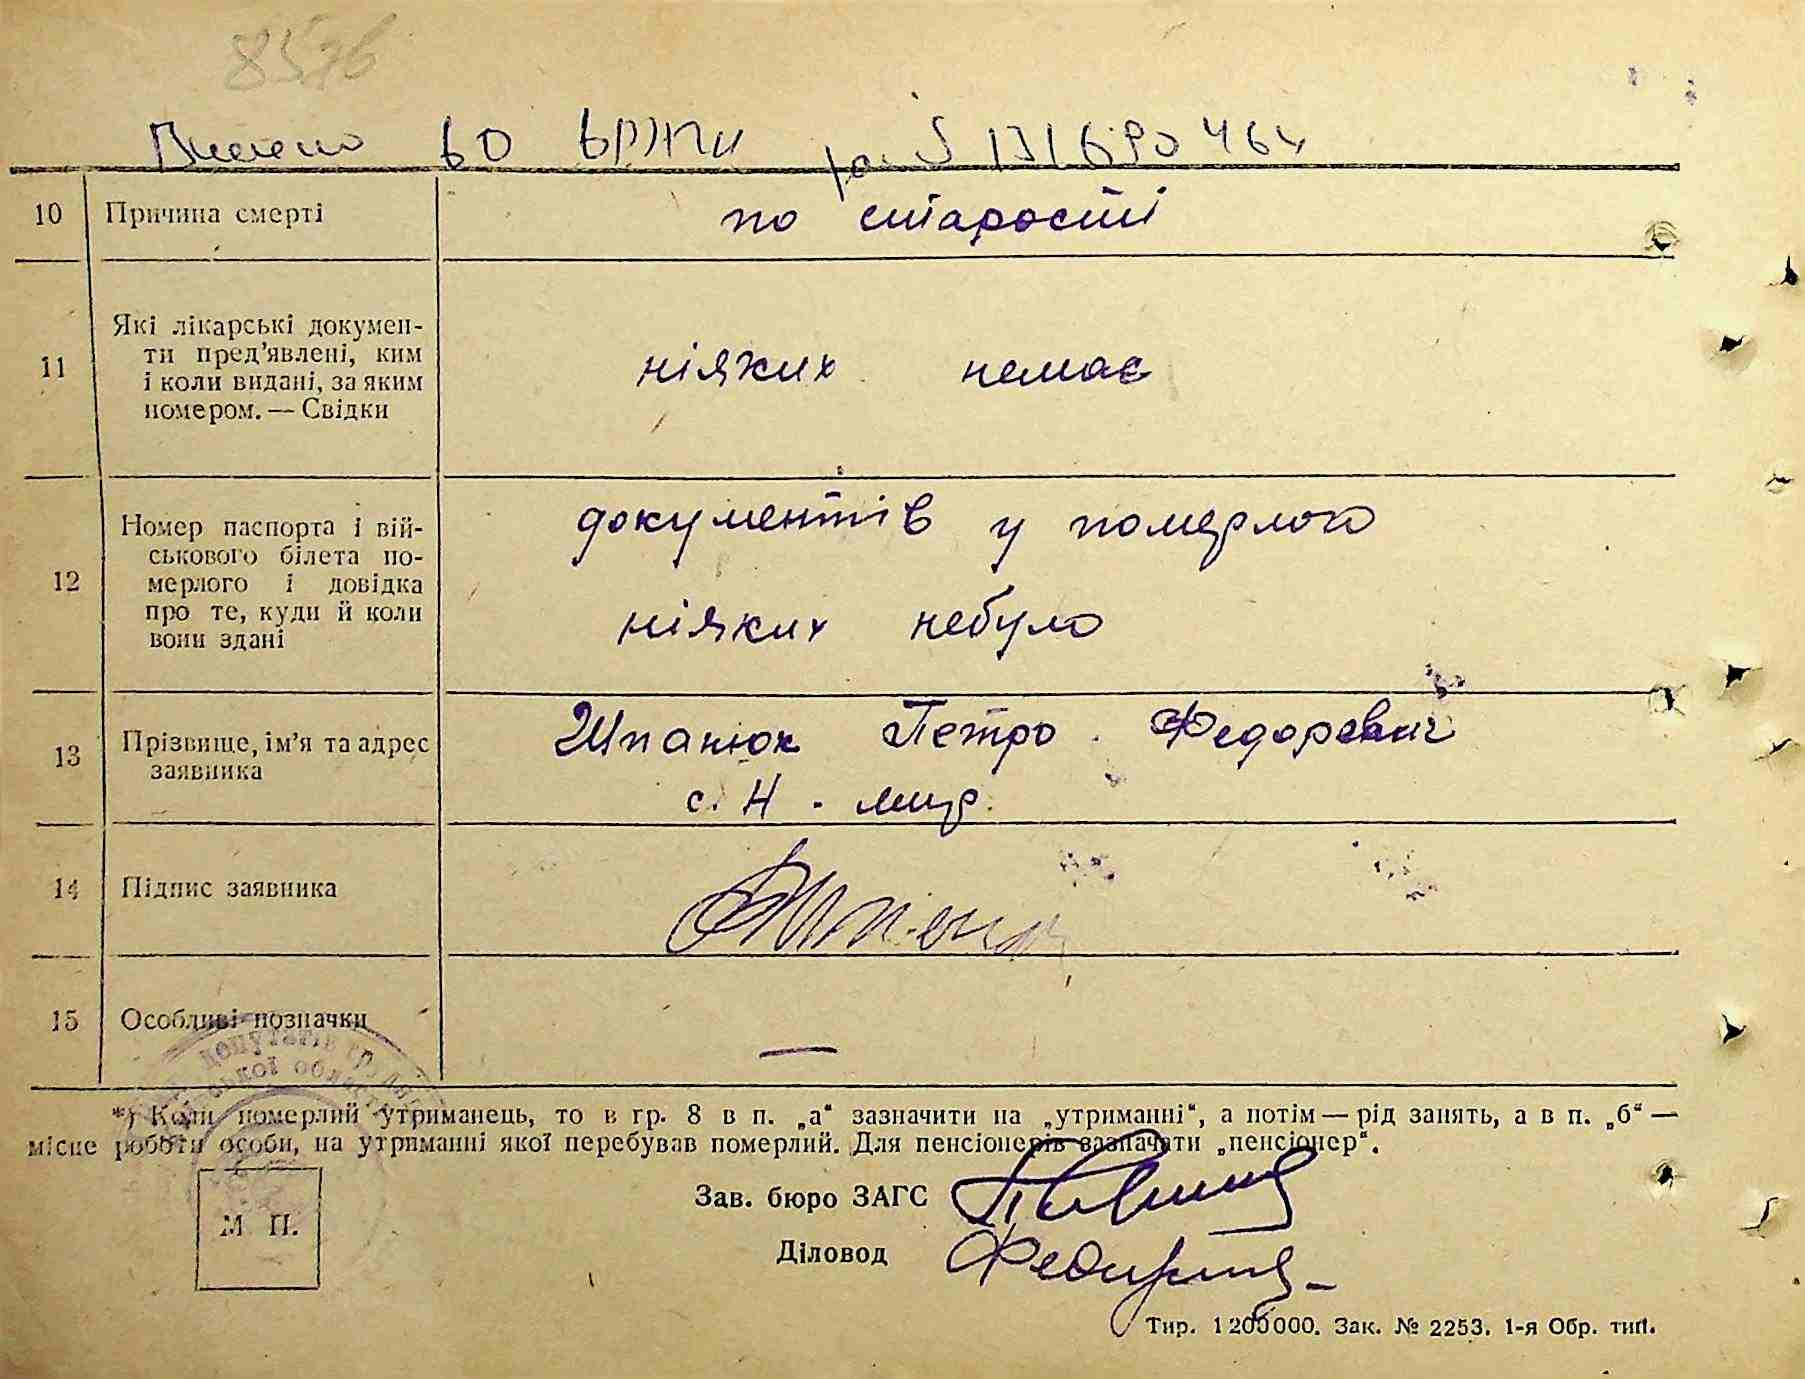 857в
Внесено до
10 Причина смерті по старості
11 Які лікарські докумен-
ти пред'явлені, ким
і коли видані, за яким
номером. — Свідки
ніяких немає
12 Номер паспорта і вій-
ськового білета по-
мерлого і довідка
про те, куди й коли
вони здані
документів у померлого
ніяких небуло
13 Прізвище, ім'я та адрес
заявника
Шпанюк Петро Федорович
с. Н. мир.
14 Підпис заявника
15 Особливі позначки —
депутатів
*) Коли померлий утриманець, то в гр. 8 в п. „а" зазначити на „утриманні", а потім — рід занять, а в п. „б" —
місце роботи особи, на утриманні якої перебував померлий. Для пенсіонерів зазначати „пенсіонер".
Зав. бюро ЗАГС
Діловод
М П.
Тир. 1 200 000. Зак. № 2253. 1-я Обр. тип.